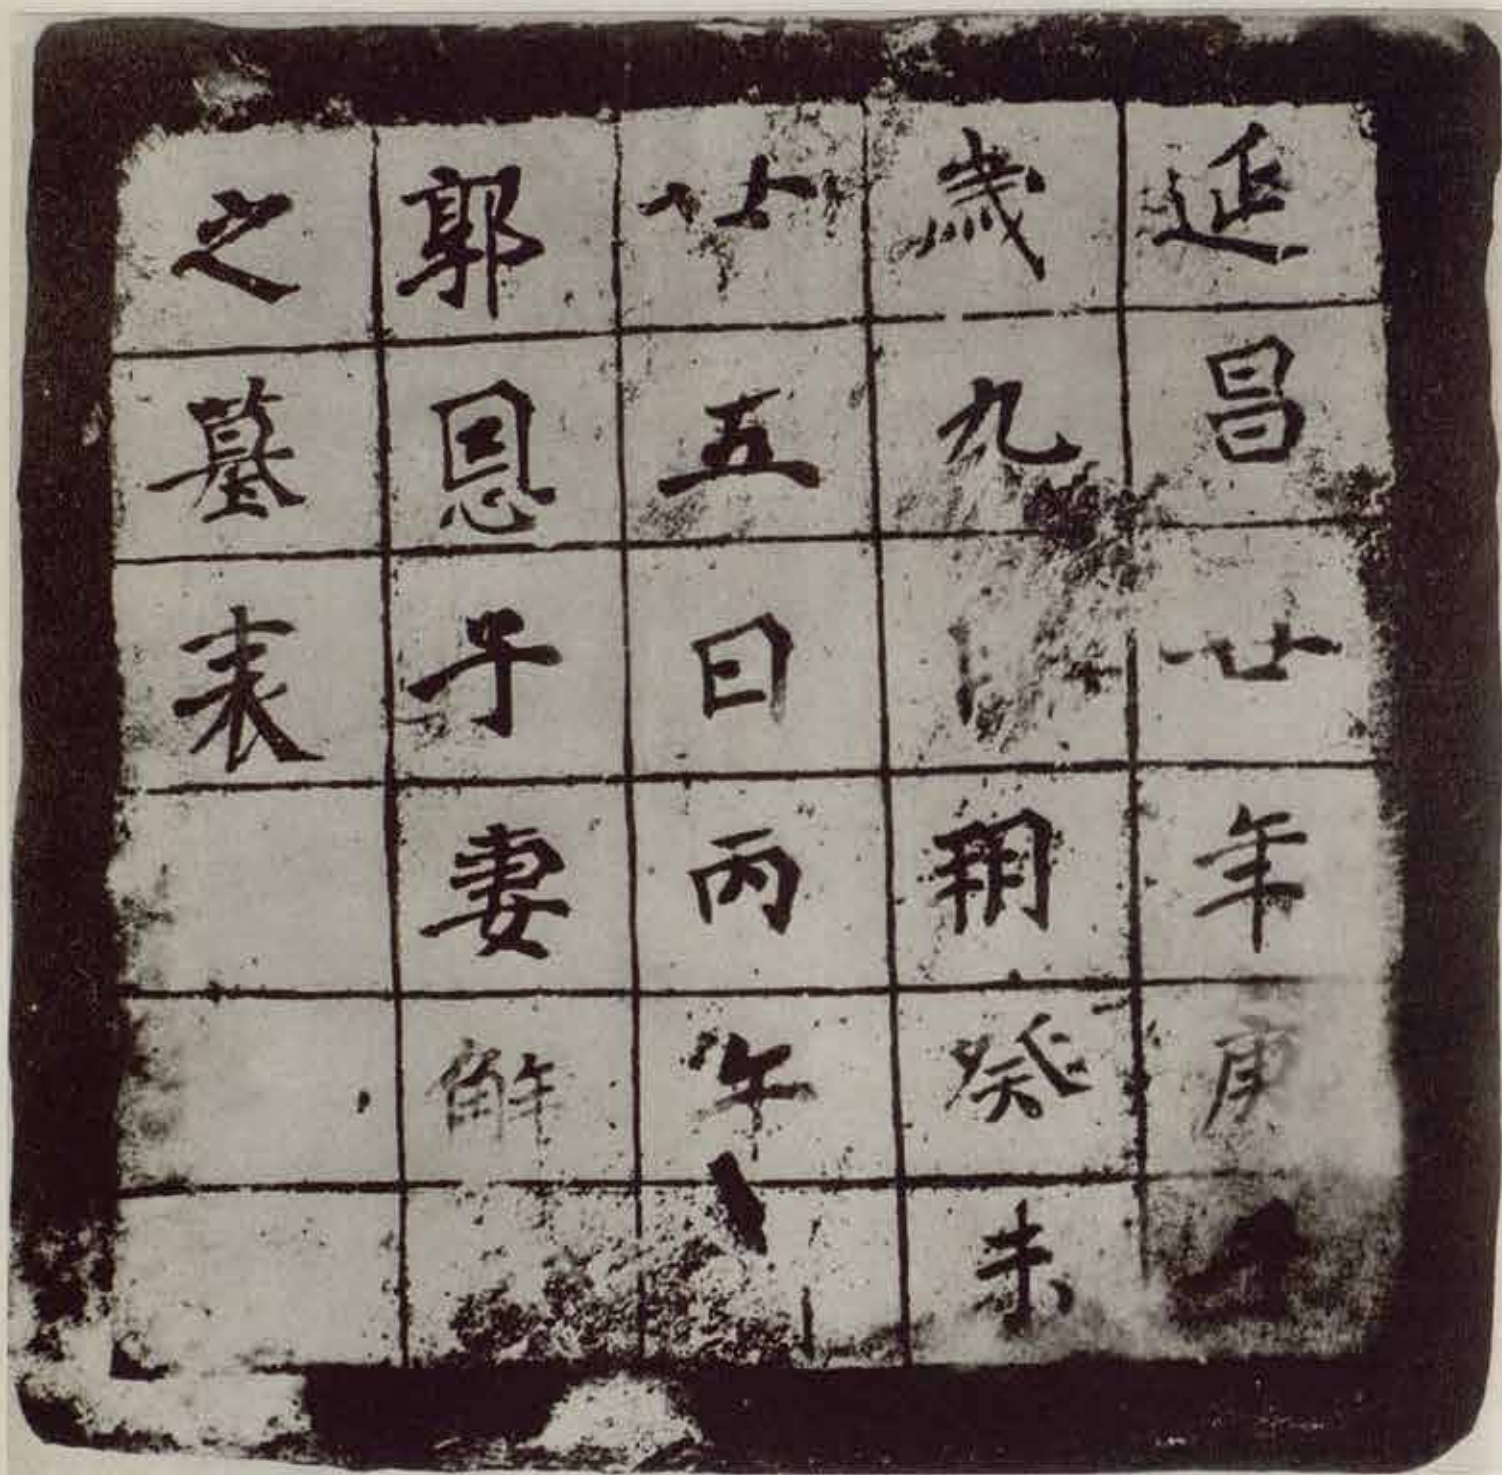 延昌廿年庚子
歲九朔癸未
廿五日丙午
郭恩子妻解
之墓表